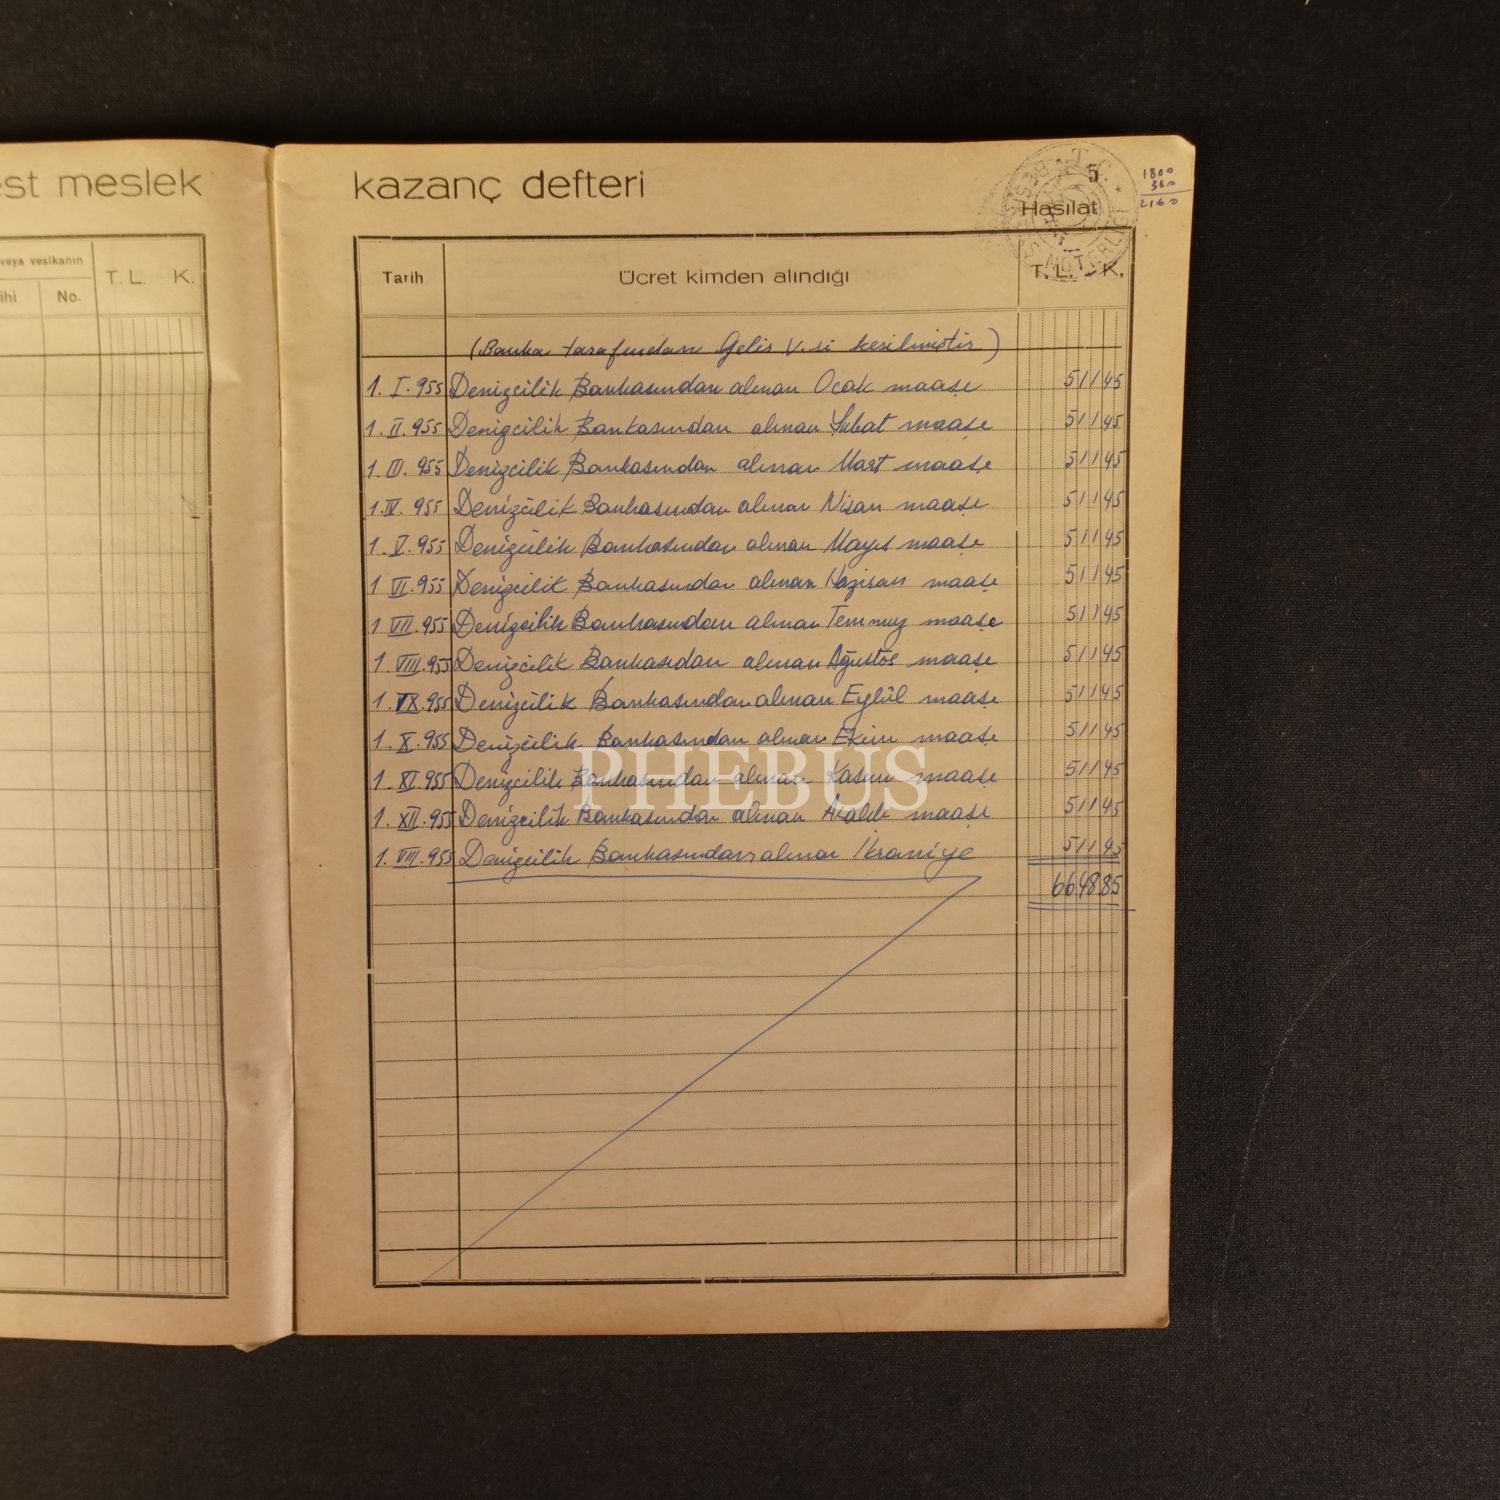 est meslek
veya vesikanın
ihi
No.
T. L. K.
kazanç defteri
5.
Hasılat
1800
360
2160
T. C.
NOTERLİĞİ
Tarih Ücret kimden alındığı T. L. K.
(Banka tarafından Gelir V. si kesilmiştir)
1. I. 955 Denizcilik Bankasından alınan Ocak maaşı 511 45
1. II. 955 Denizcilik Bankasından alınan Şubat maaşı 511 45
1. III. 955 Denizcilik Bankasından alınan Mart maaşı 511 45
1. IV. 955 Denizcilik Bankasından alınan Nisan maaşı 511 45
1. V. 955 Denizcilik Bankasından alınan Mayıs maaşı 511 45
1 VI. 955 Denizcilik Bankasından alınan Haziran maaşı 511 45
1 VII. 955 Denizcilik Bankasından alınan Temmuz maaşı 511 45
1 VIII. 955 Denizcilik Bankasıdan alınan Ağustos maaşı 511 45
1. IX. 955 Denizcilik Bankasından alınan Eylül maaşı 511 45
1. X. 955 Denizcilik Bankasından alınan Ekim maaşı 511 45
1. XI. 955 Denizcilik Bankasından alınan Kasım maaşı 511 45
1. XII. 955 Denizcilik Bankasından alınan Aralık maaşı 511 45
1. VIII. 955 Denizcilik Bankasından alınan İkramiye 511 45
6648 85
PHEBUS